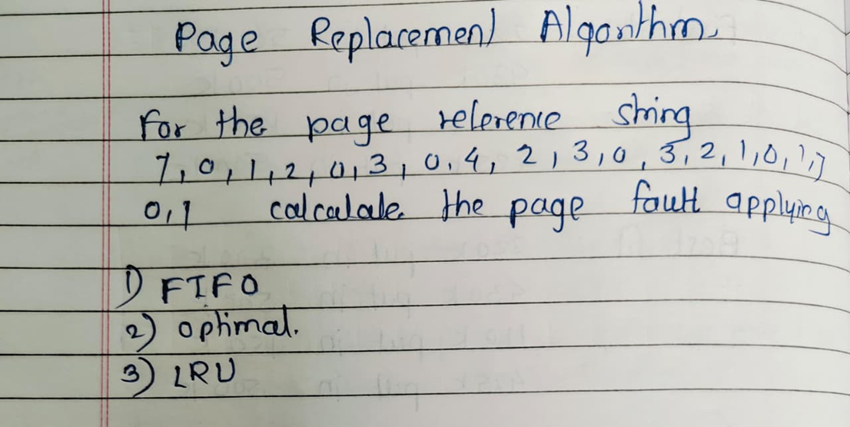 Page Replacement Algorithm
For the page reference string
7, 0, 1, 2, 0, 3, 0, 4, 2, 3, 0, 3, 2, 1, 0, 1, 7
0, 1 calcalate the page fault applying
1) FIFO
2) optimal.
3) LRU